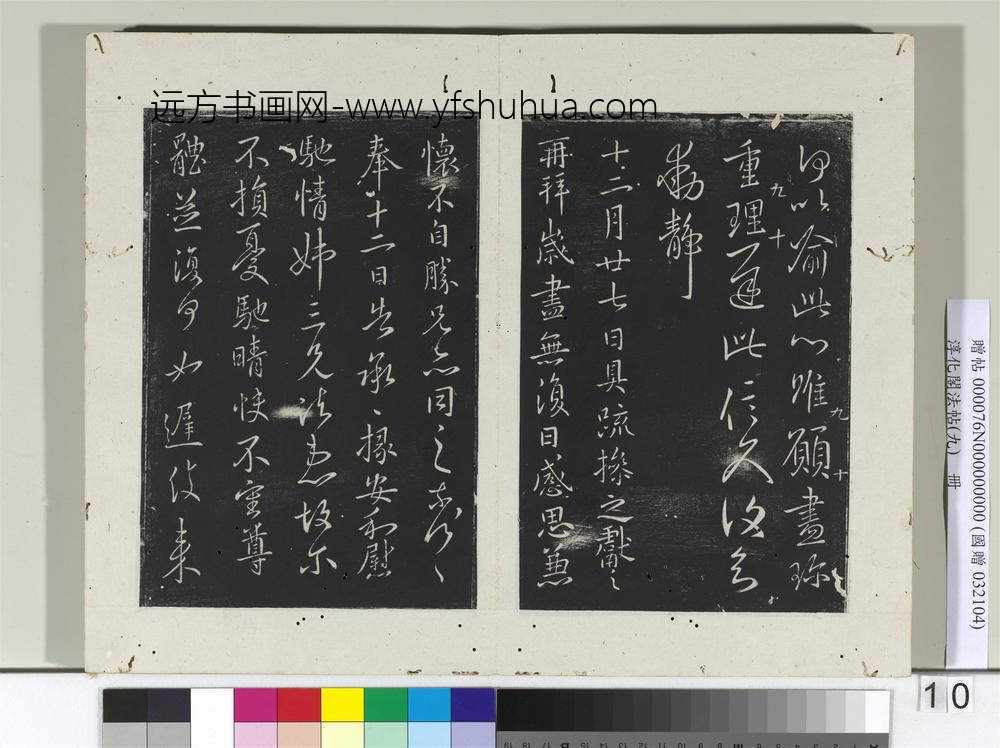 远方书画网-www.yfshuhua.com
何以喻此心唯願盡珍
九 十
重理遲此信反復知
九 十
動靜
十二月廿七日具疏操之獻之
再拜歲盡無復日感思兼
懷不自勝兄亦同之
奉十二日告承安和慰
馳情姊三兄諸患故尒
不損憂馳晴快不審尊
體並復何如遲復
贈帖 000076N000000000 (國贈 032104)
淳化閣法帖(九) 冊
10